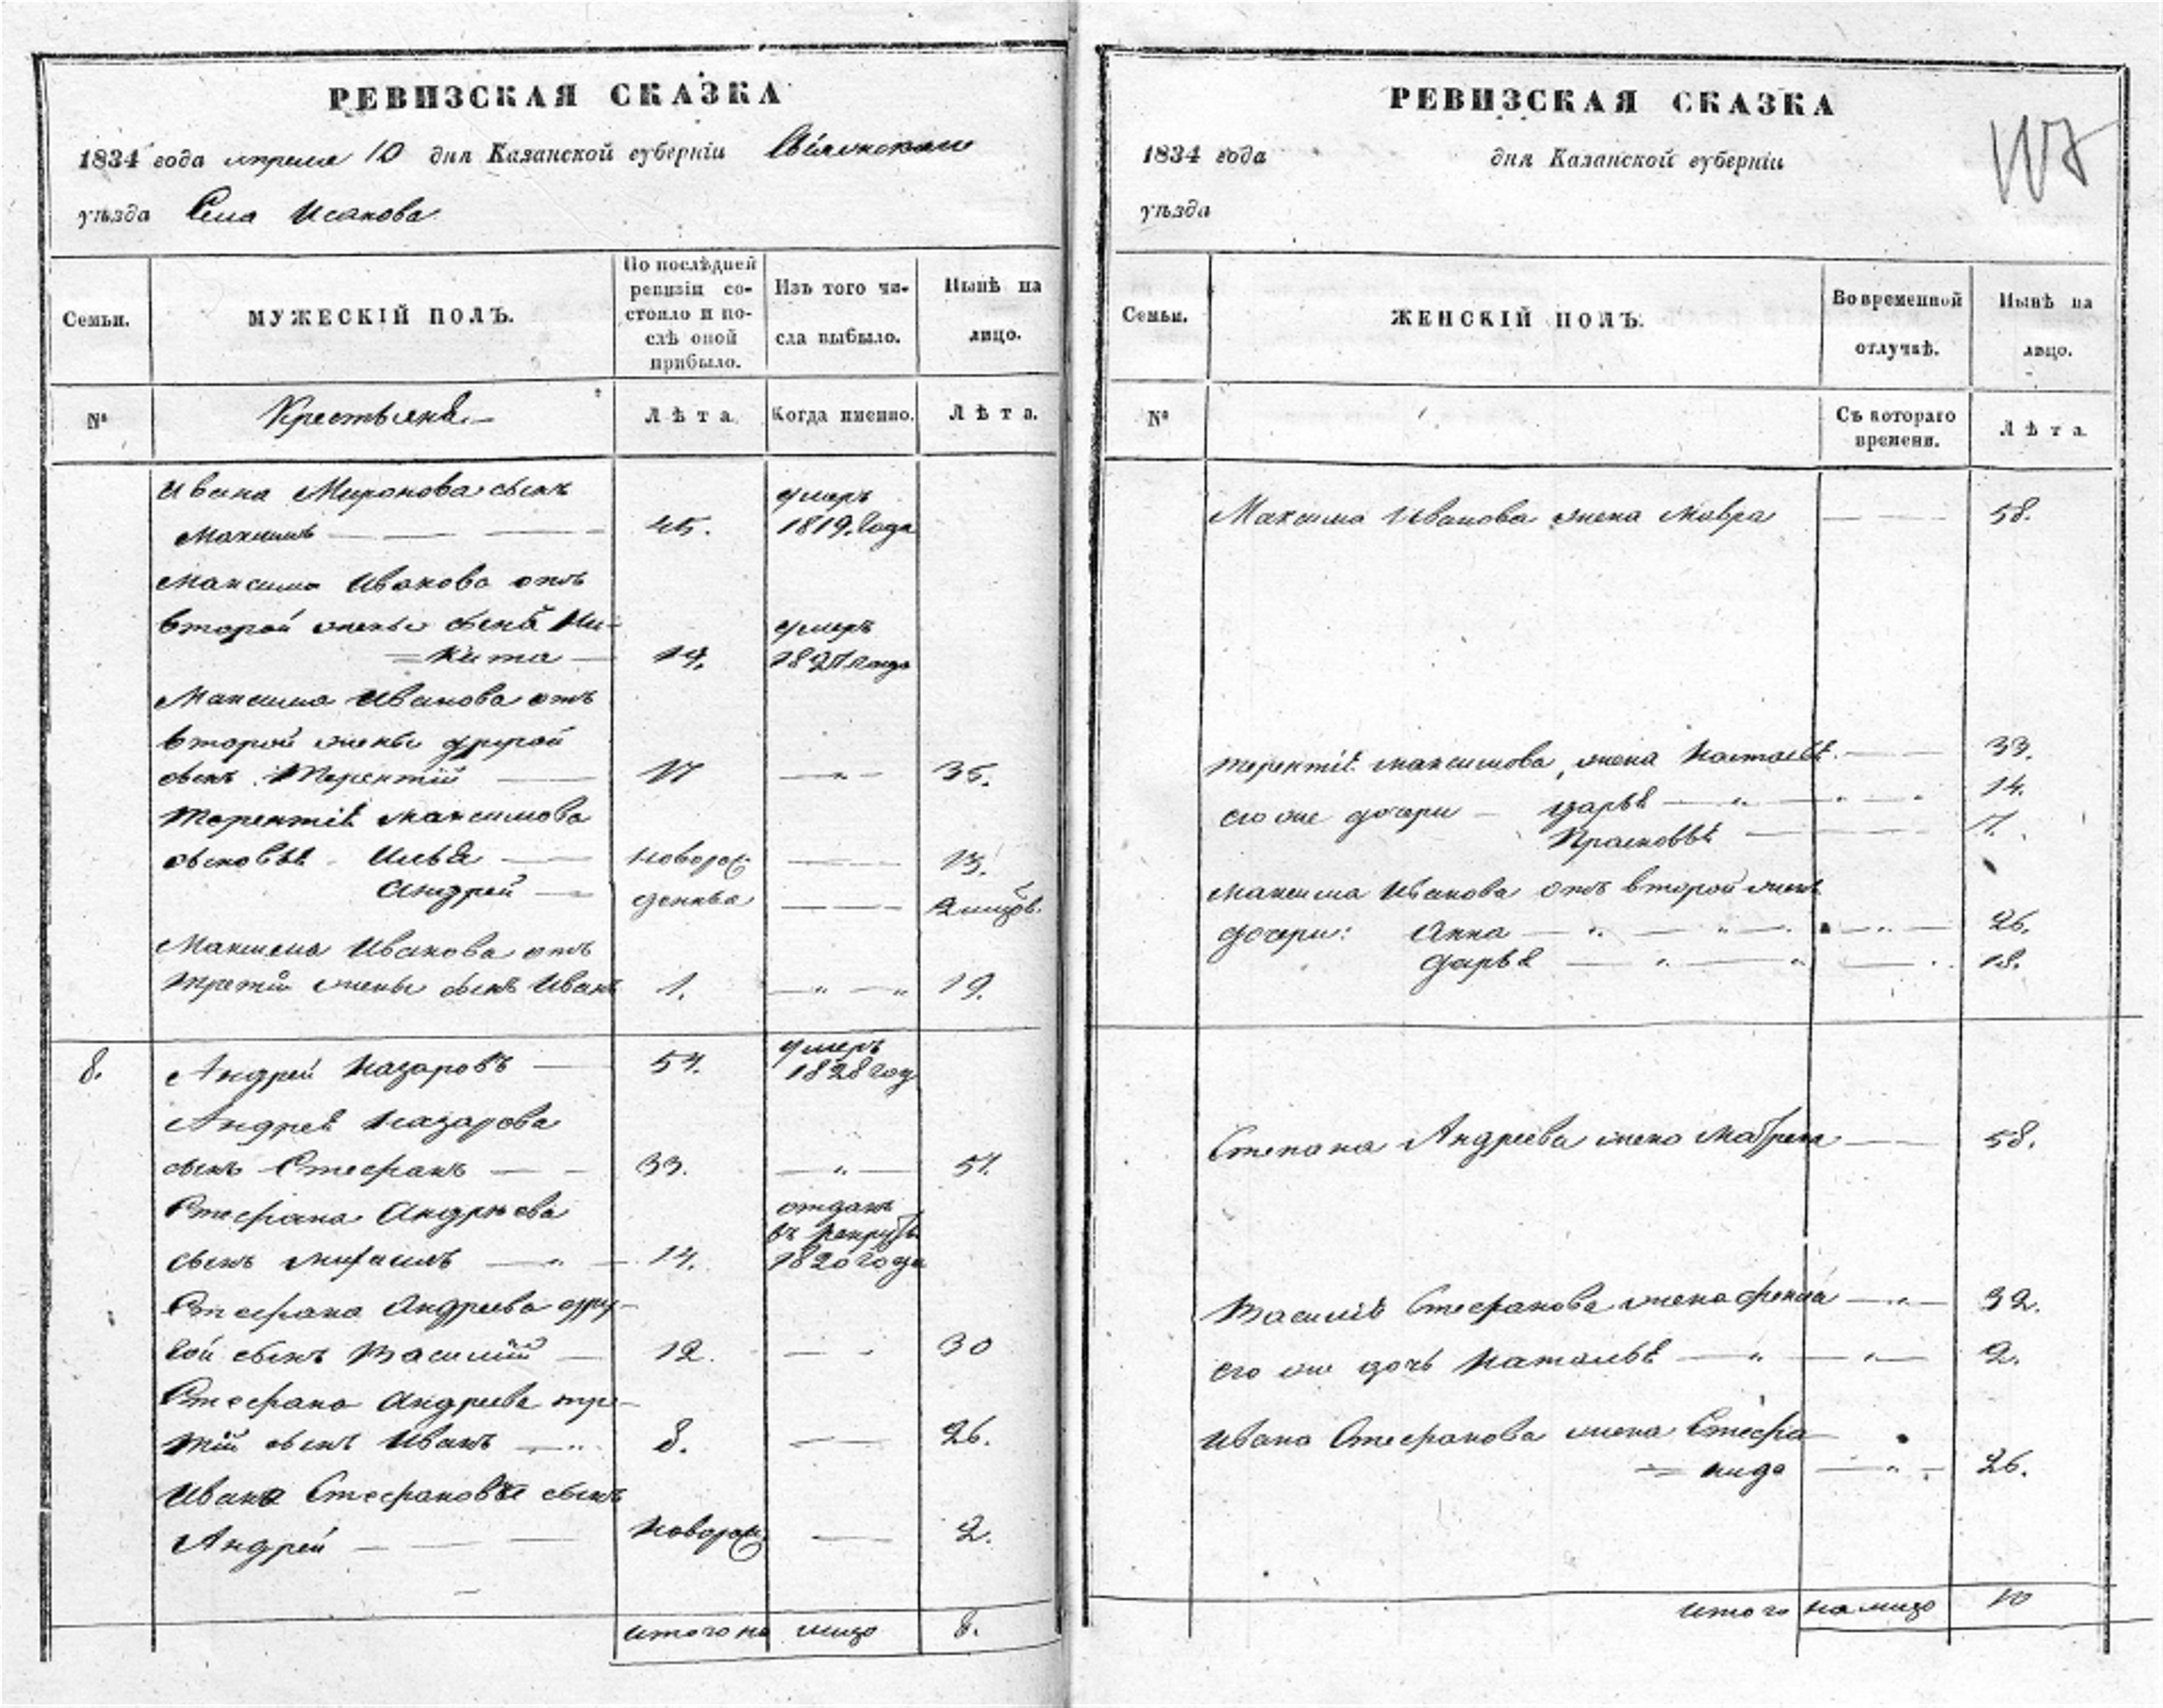 РЕВИЗСКАЯ СКАЗКА
1834 года апреля 10 дня Казанской губерніи
уѣзда Села Исакова
Семьи.
МУЖЕСКІЙ ПОЛЪ.
По послѣдней
ревизіи со-
стояло и по-
слѣ оной
прибыло.
Изъ того чи-
сла выбыло.
Нынѣ на
лицо.
№
Крестьяне
Лѣта.
Когда именно.
Лѣта.
Ивана Миронова сынъ
умеръ
Максимъ 45. 1819. года
Максима Иванова отъ
второй жены сынъ Ни-
умеръ
= кита 14.
Максима Иванова отъ
второй жены другой
сынъ Терентій 17 35.
Терентія Максимова
сыновья Илья новорож 13.
Андрей денные
Максима Иванова отъ
третій жены сынъ Иванъ 1. 19.
умеръ
8. Андрей Назаровъ 54. 1828 год
Андрея Назарова
сынъ Стефанъ 33. 51.
Стефана Андрѣева
отданъ
въ рекруты
сынъ 14. 1820 года
Стефана Андреева дру-
гой сынъ Василий 12. 30
Стефана Андреева тре-
тій сынъ Иванъ 8. 26.
Ивана Стефанова сынъ
Андрей новорож 2.
итого на лицо 8.
РЕВИЗСКАЯ СКАЗКА
1834 года дня Казанской губерніи
уѣзда
Семьи.
ЖЕНСКІЙ ПОЛЪ.
Во временной
отлучкѣ.
Нынѣ на
лицо.
№
Съ котораго
времени.
Лѣта.
Максима Иванова жена Мавра 58.
Терентія Максимова жена 33.
его же дочери Дарья 14.
Прасковья 7.
Максима Иванова отъ второй жены
дочери: Анна 26.
Дарья 18.
Степана Андреева жена 58.
Василія Стефанова жена 32.
его же дочь Наталья 2.
Ивана Стефанова жена Стефа-
= нида 26.
итого на лицо 10